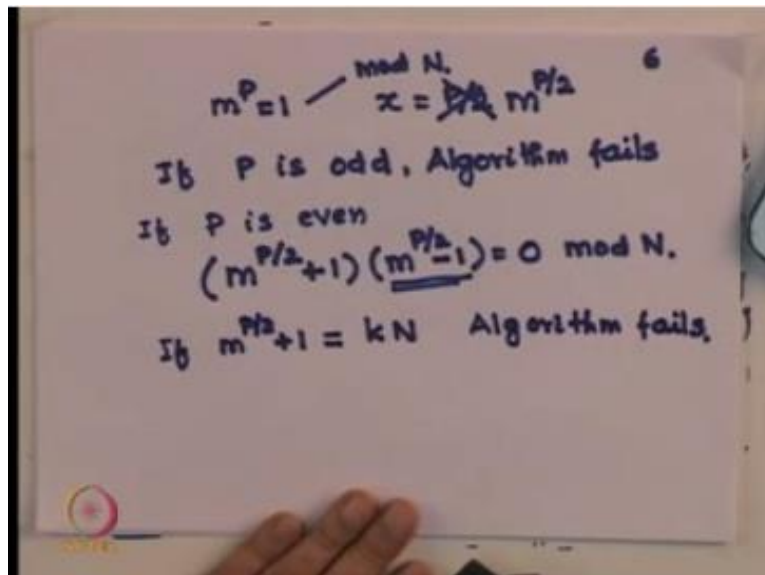 6
mod N.
m^P = 1 x = P/2 m^P/2
If P is odd, Algorithm fails
If P is even
(m^P/2 + 1) (m^P/2 - 1) = 0 mod N.
If m^P/2 + 1 = kN Algorithm fails.